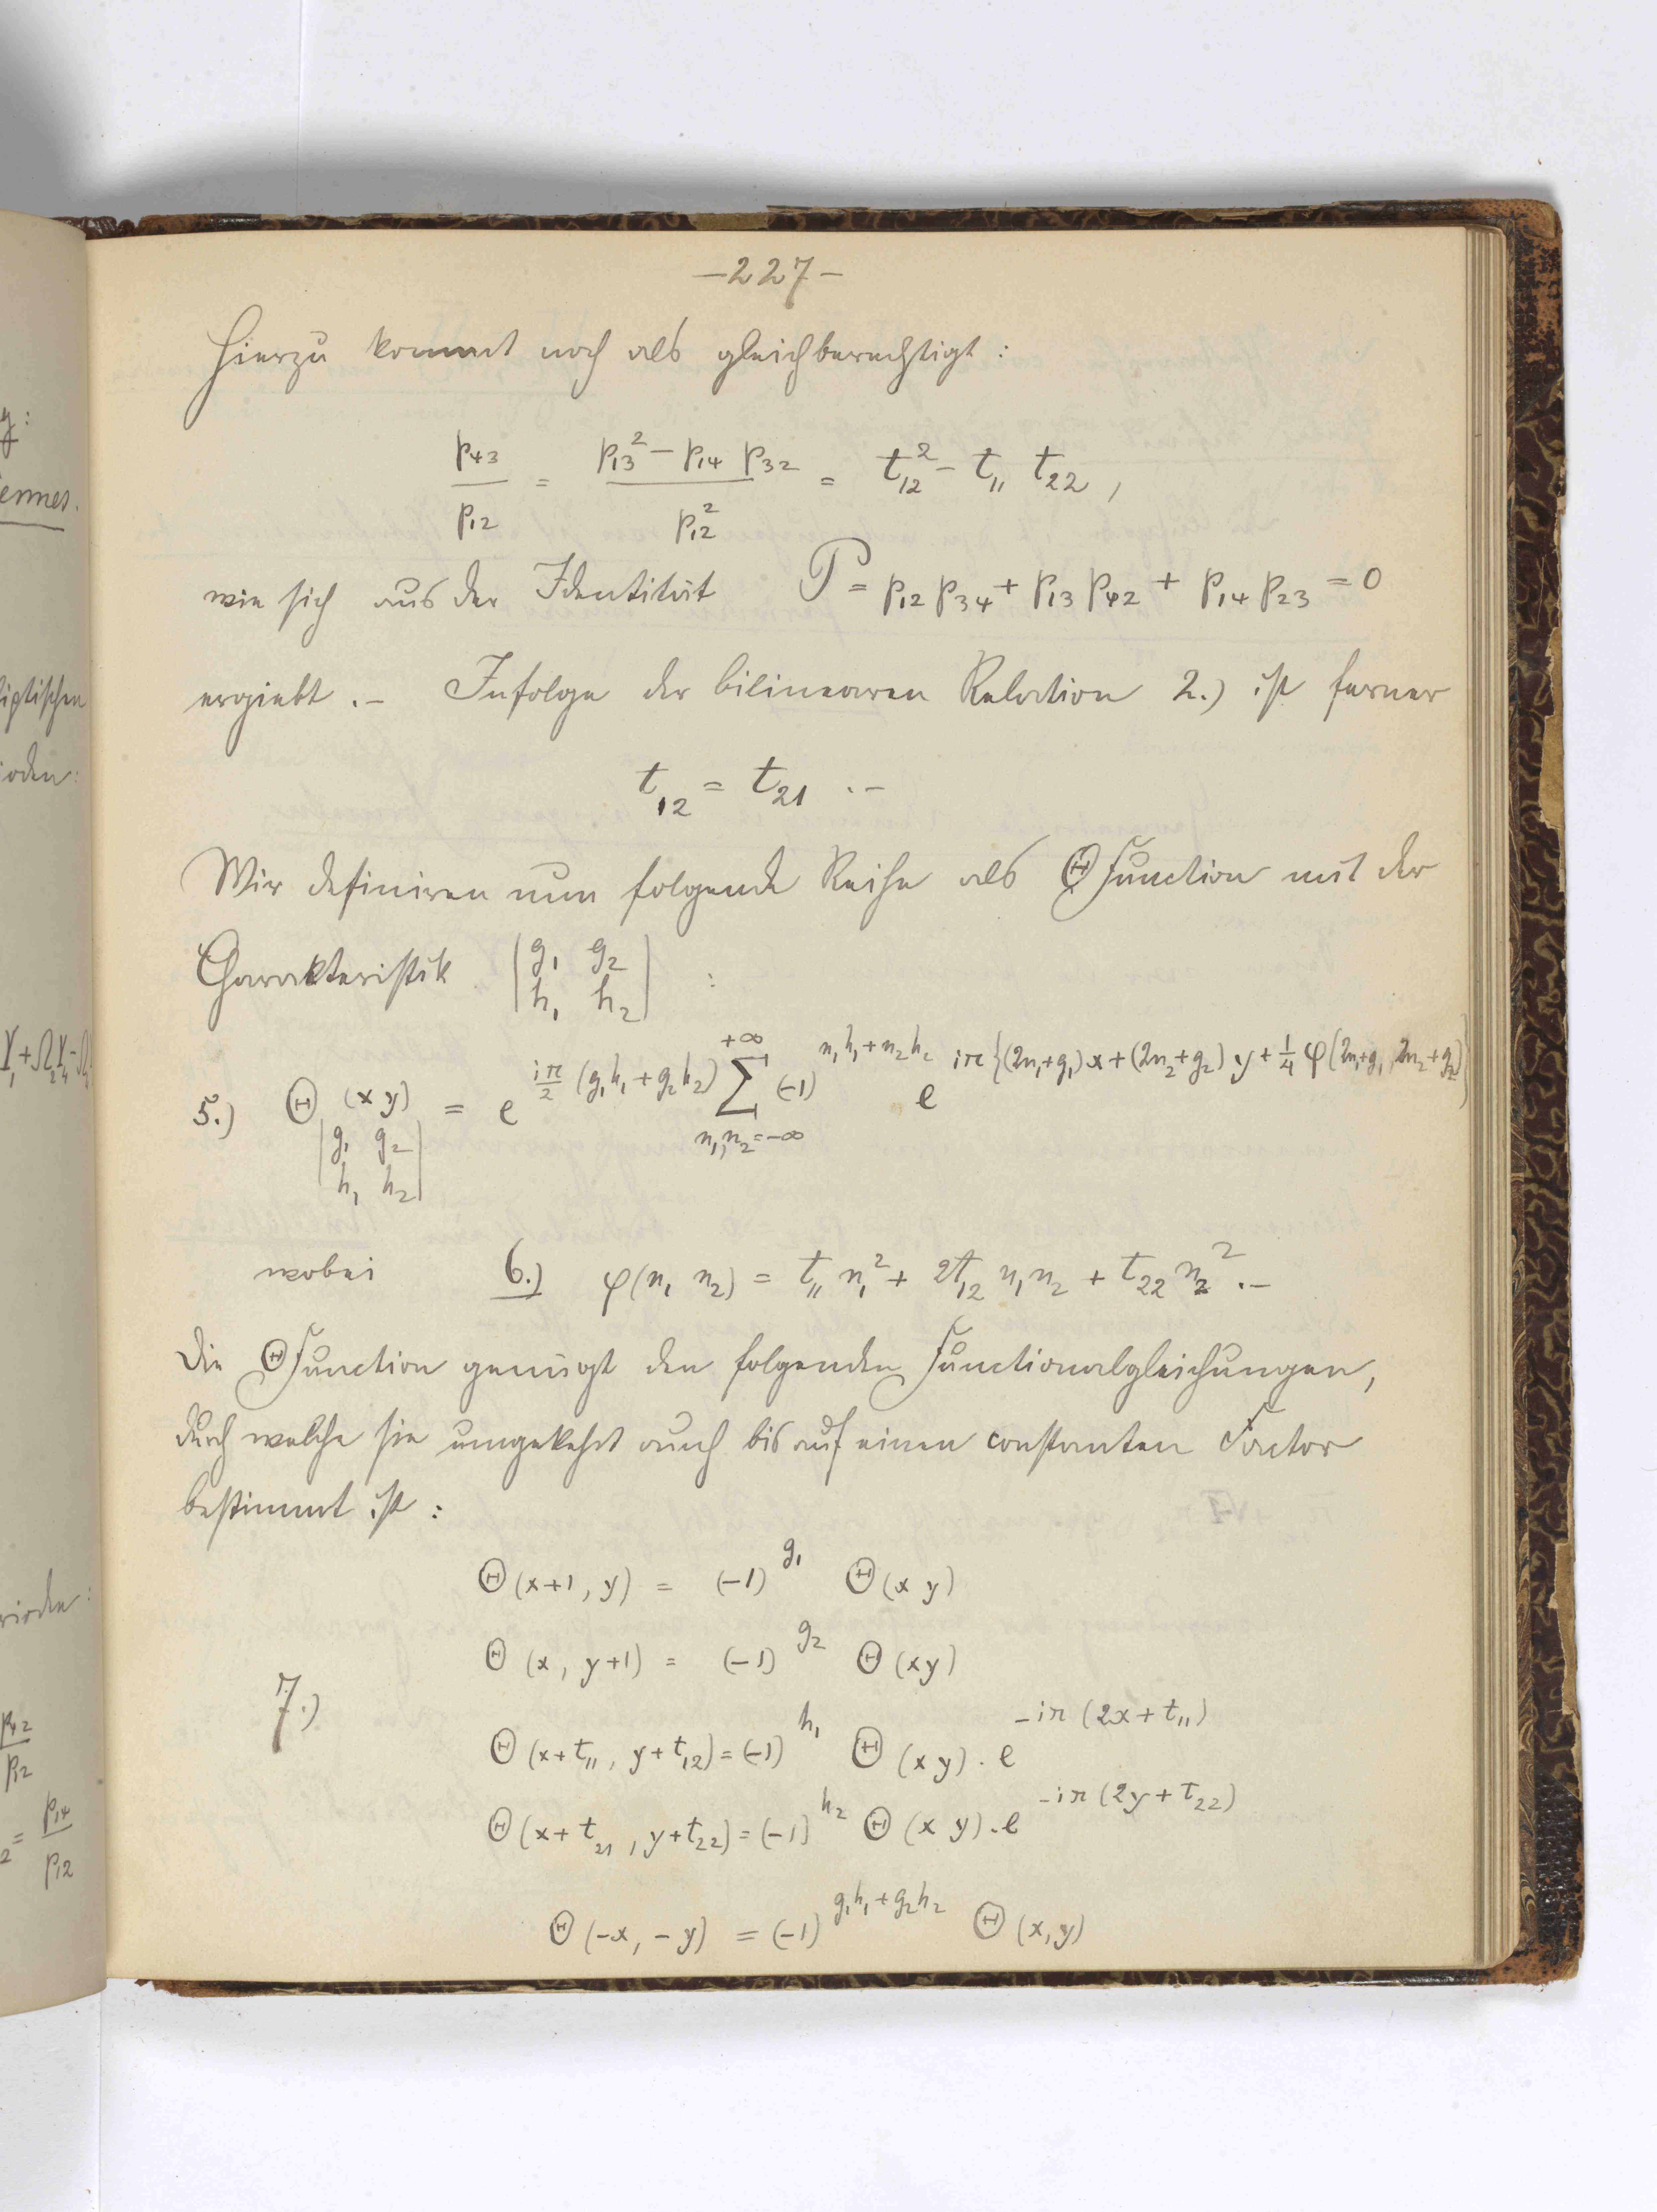 g:
iennes.
liptischen
ioden:
Y₁+Ω₂Y₄-Ω
rioden:
p₄₂
p₁₂
₂ = p₁₄
p₁₂
-227-
Hierzu kommt noch als gleichberechtigt:
p₄₃/p₁₂ = (p₁₃² - p₁₄ p₃₂)/p₁₂² = t₁₂² - t₁₁ t₂₂,
wie sich aus der Identität P = p₁₂p₃₄ + p₁₃p₄₂ + p₁₄p₂₃ = 0
ergiebt.- Infolge der bilinearen Relation 2.) ist ferner
t₁₂ = t₂₁ .-
Wir definiren nun folgende Reihe als Θfunction mit der
Charakteristik |g₁ g₂|
|h₁ h₂| :
5.) Θ|g₁ g₂; h₁ h₂| (x y) = e^{iπ/2 (g₁h₁+g₂h₂)} Σ_{n₁,n₂=-∞}^{+∞} (-1)^{n₁h₁+n₂h₂} e^{iπ{(2n₁+g₁)x+(2n₂+g₂)y+¼φ(2n₁+g₁, 2n₂+g₂)}}
wobei 6.) φ(n₁ n₂) = t₁₁n₁² + 2t₁₂n₁n₂ + t₂₂n₂² .-
Die Θfunction genügt den folgenden Functionalgleichungen,
durch welche sie umgekehrt auch bis auf einen constanten Factor
bestimmt ist:
Θ(x+1, y) = (-1)^{g₁} Θ(x y)
Θ(x, y+1) = (-1)^{g₂} Θ(xy)
7.)
Θ(x+t₁₁, y+t₁₂) = (-1)^{h₁} Θ(x y) . e^{-iπ(2x+t₁₁)}
Θ(x+t₂₁, y+t₂₂) = (-1)^{h₂} Θ(x y) . e^{-iπ(2y+t₂₂)}
Θ(-x, -y) = (-1)^{g₁h₁+g₂h₂} Θ(x,y)